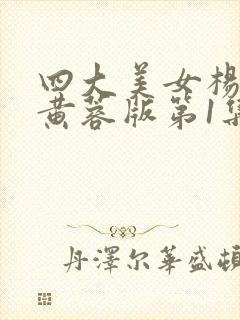 四大美女杨
黄蓉版第1集
丹澤尔華盛頓